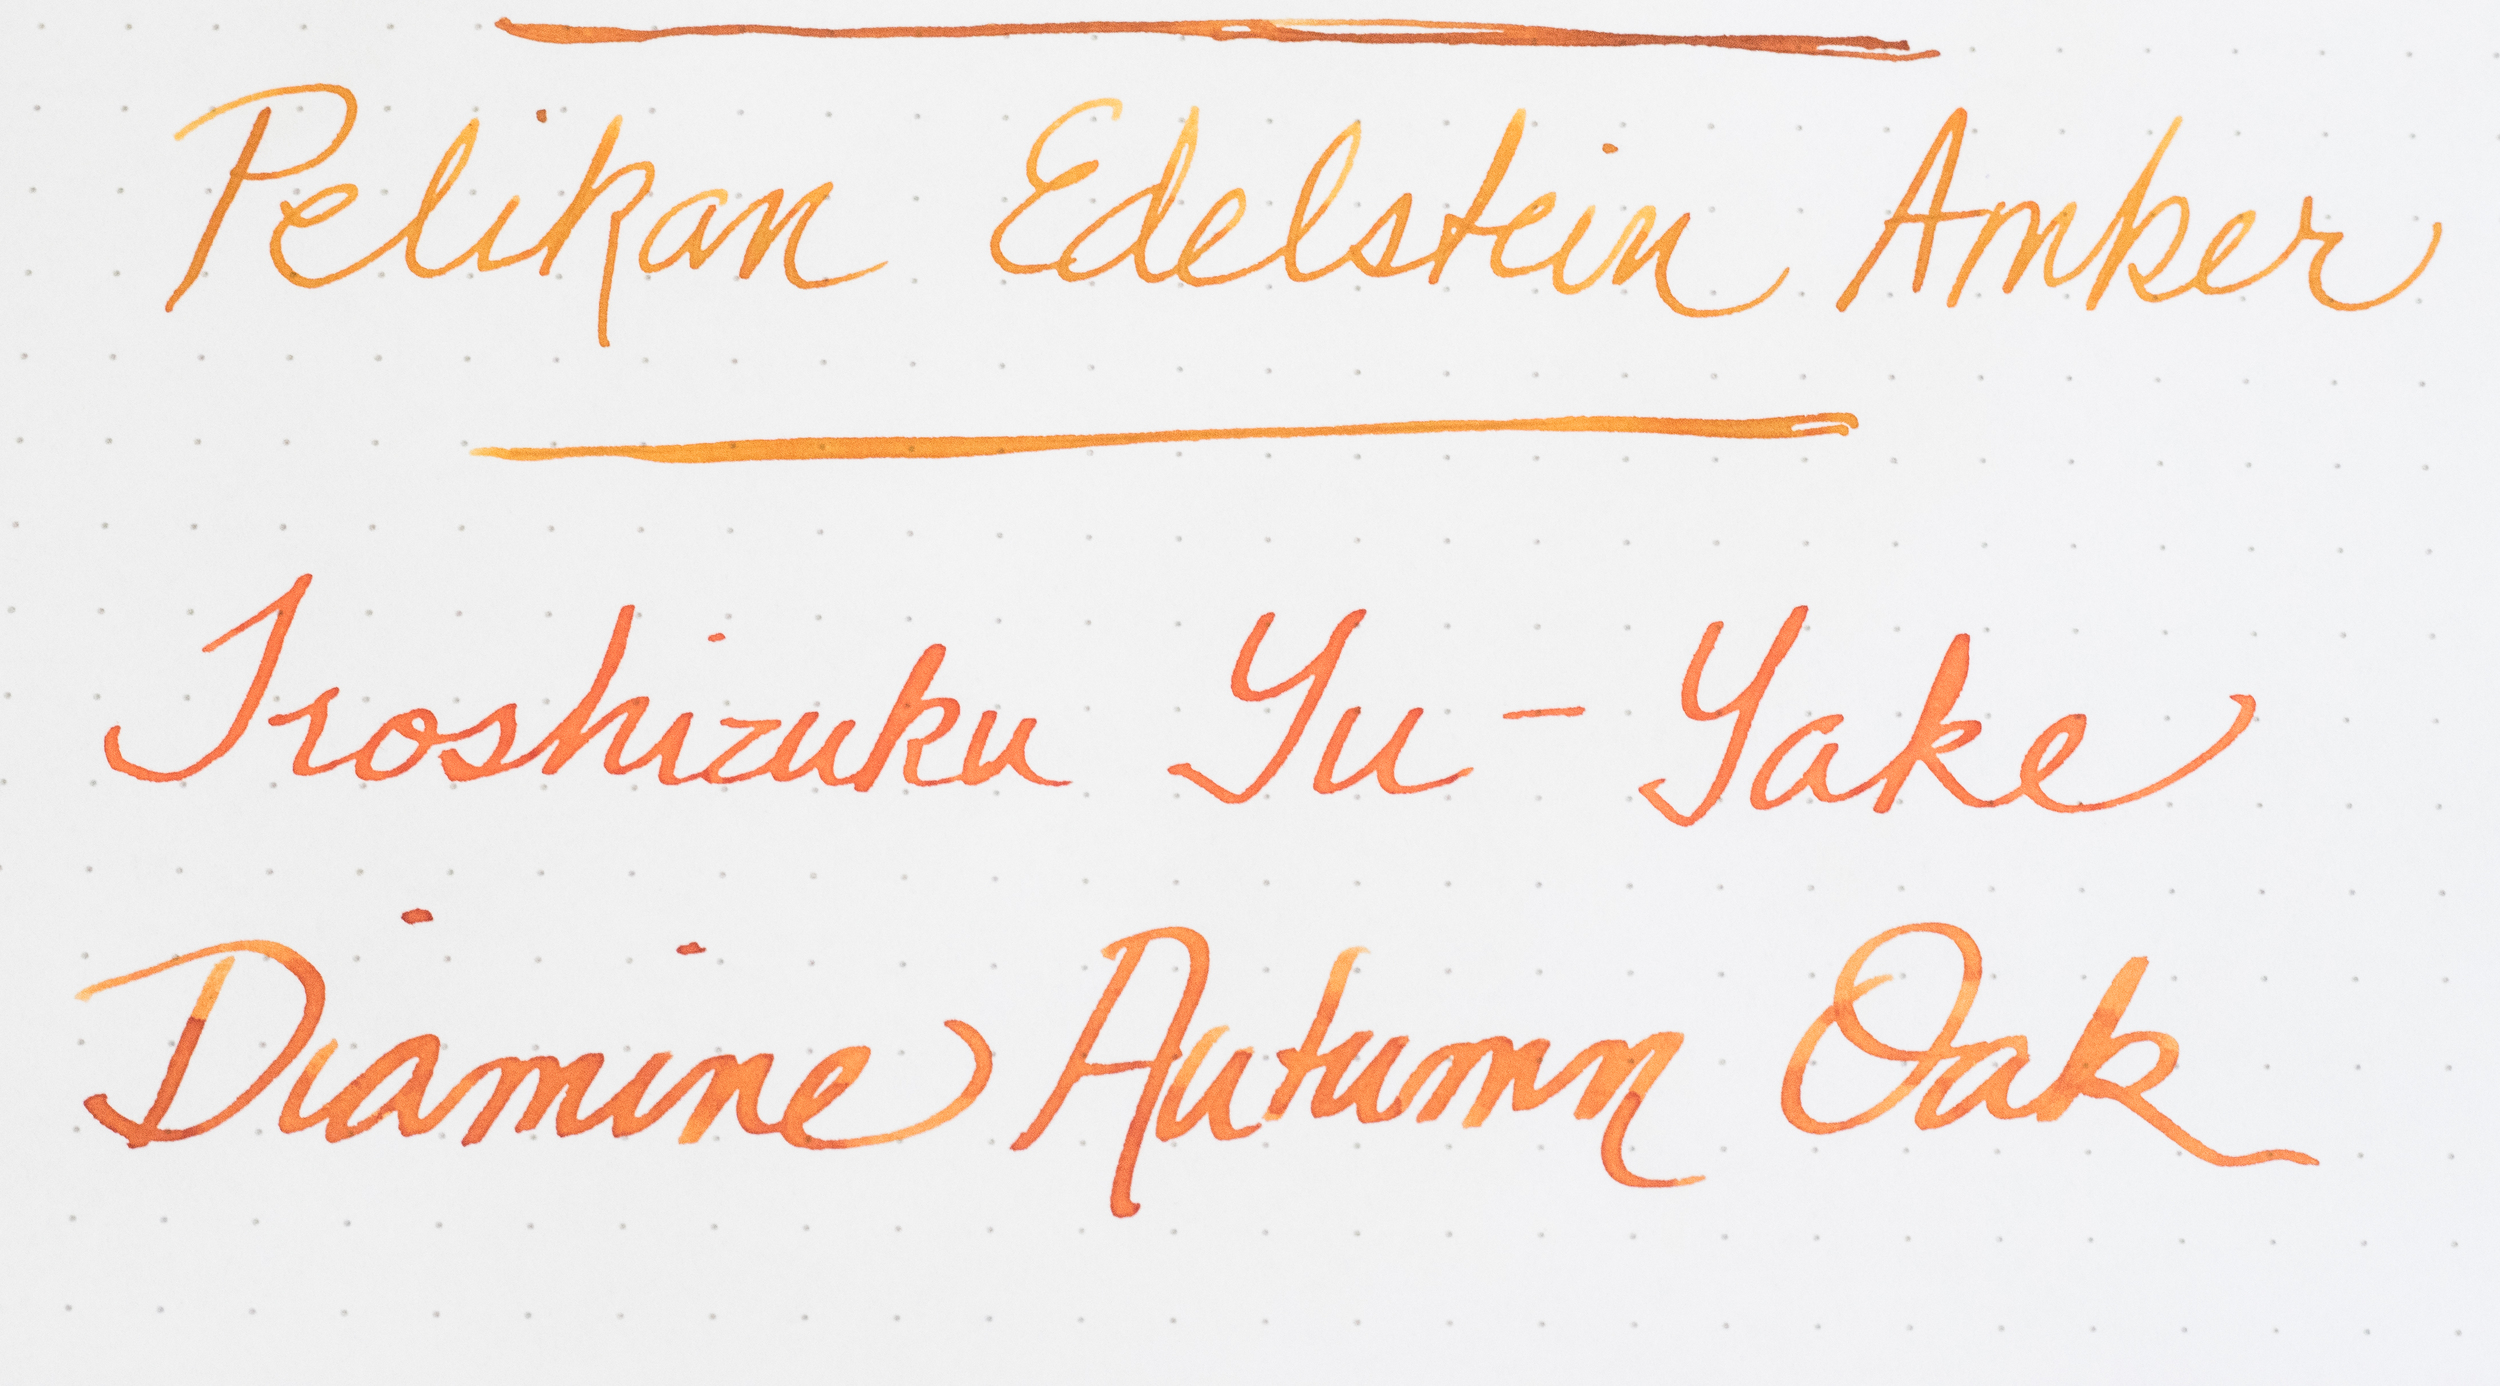 Pelikan Edelstein Amber
Iroshizuku Yu-Yake
Diamine Autumn Oak